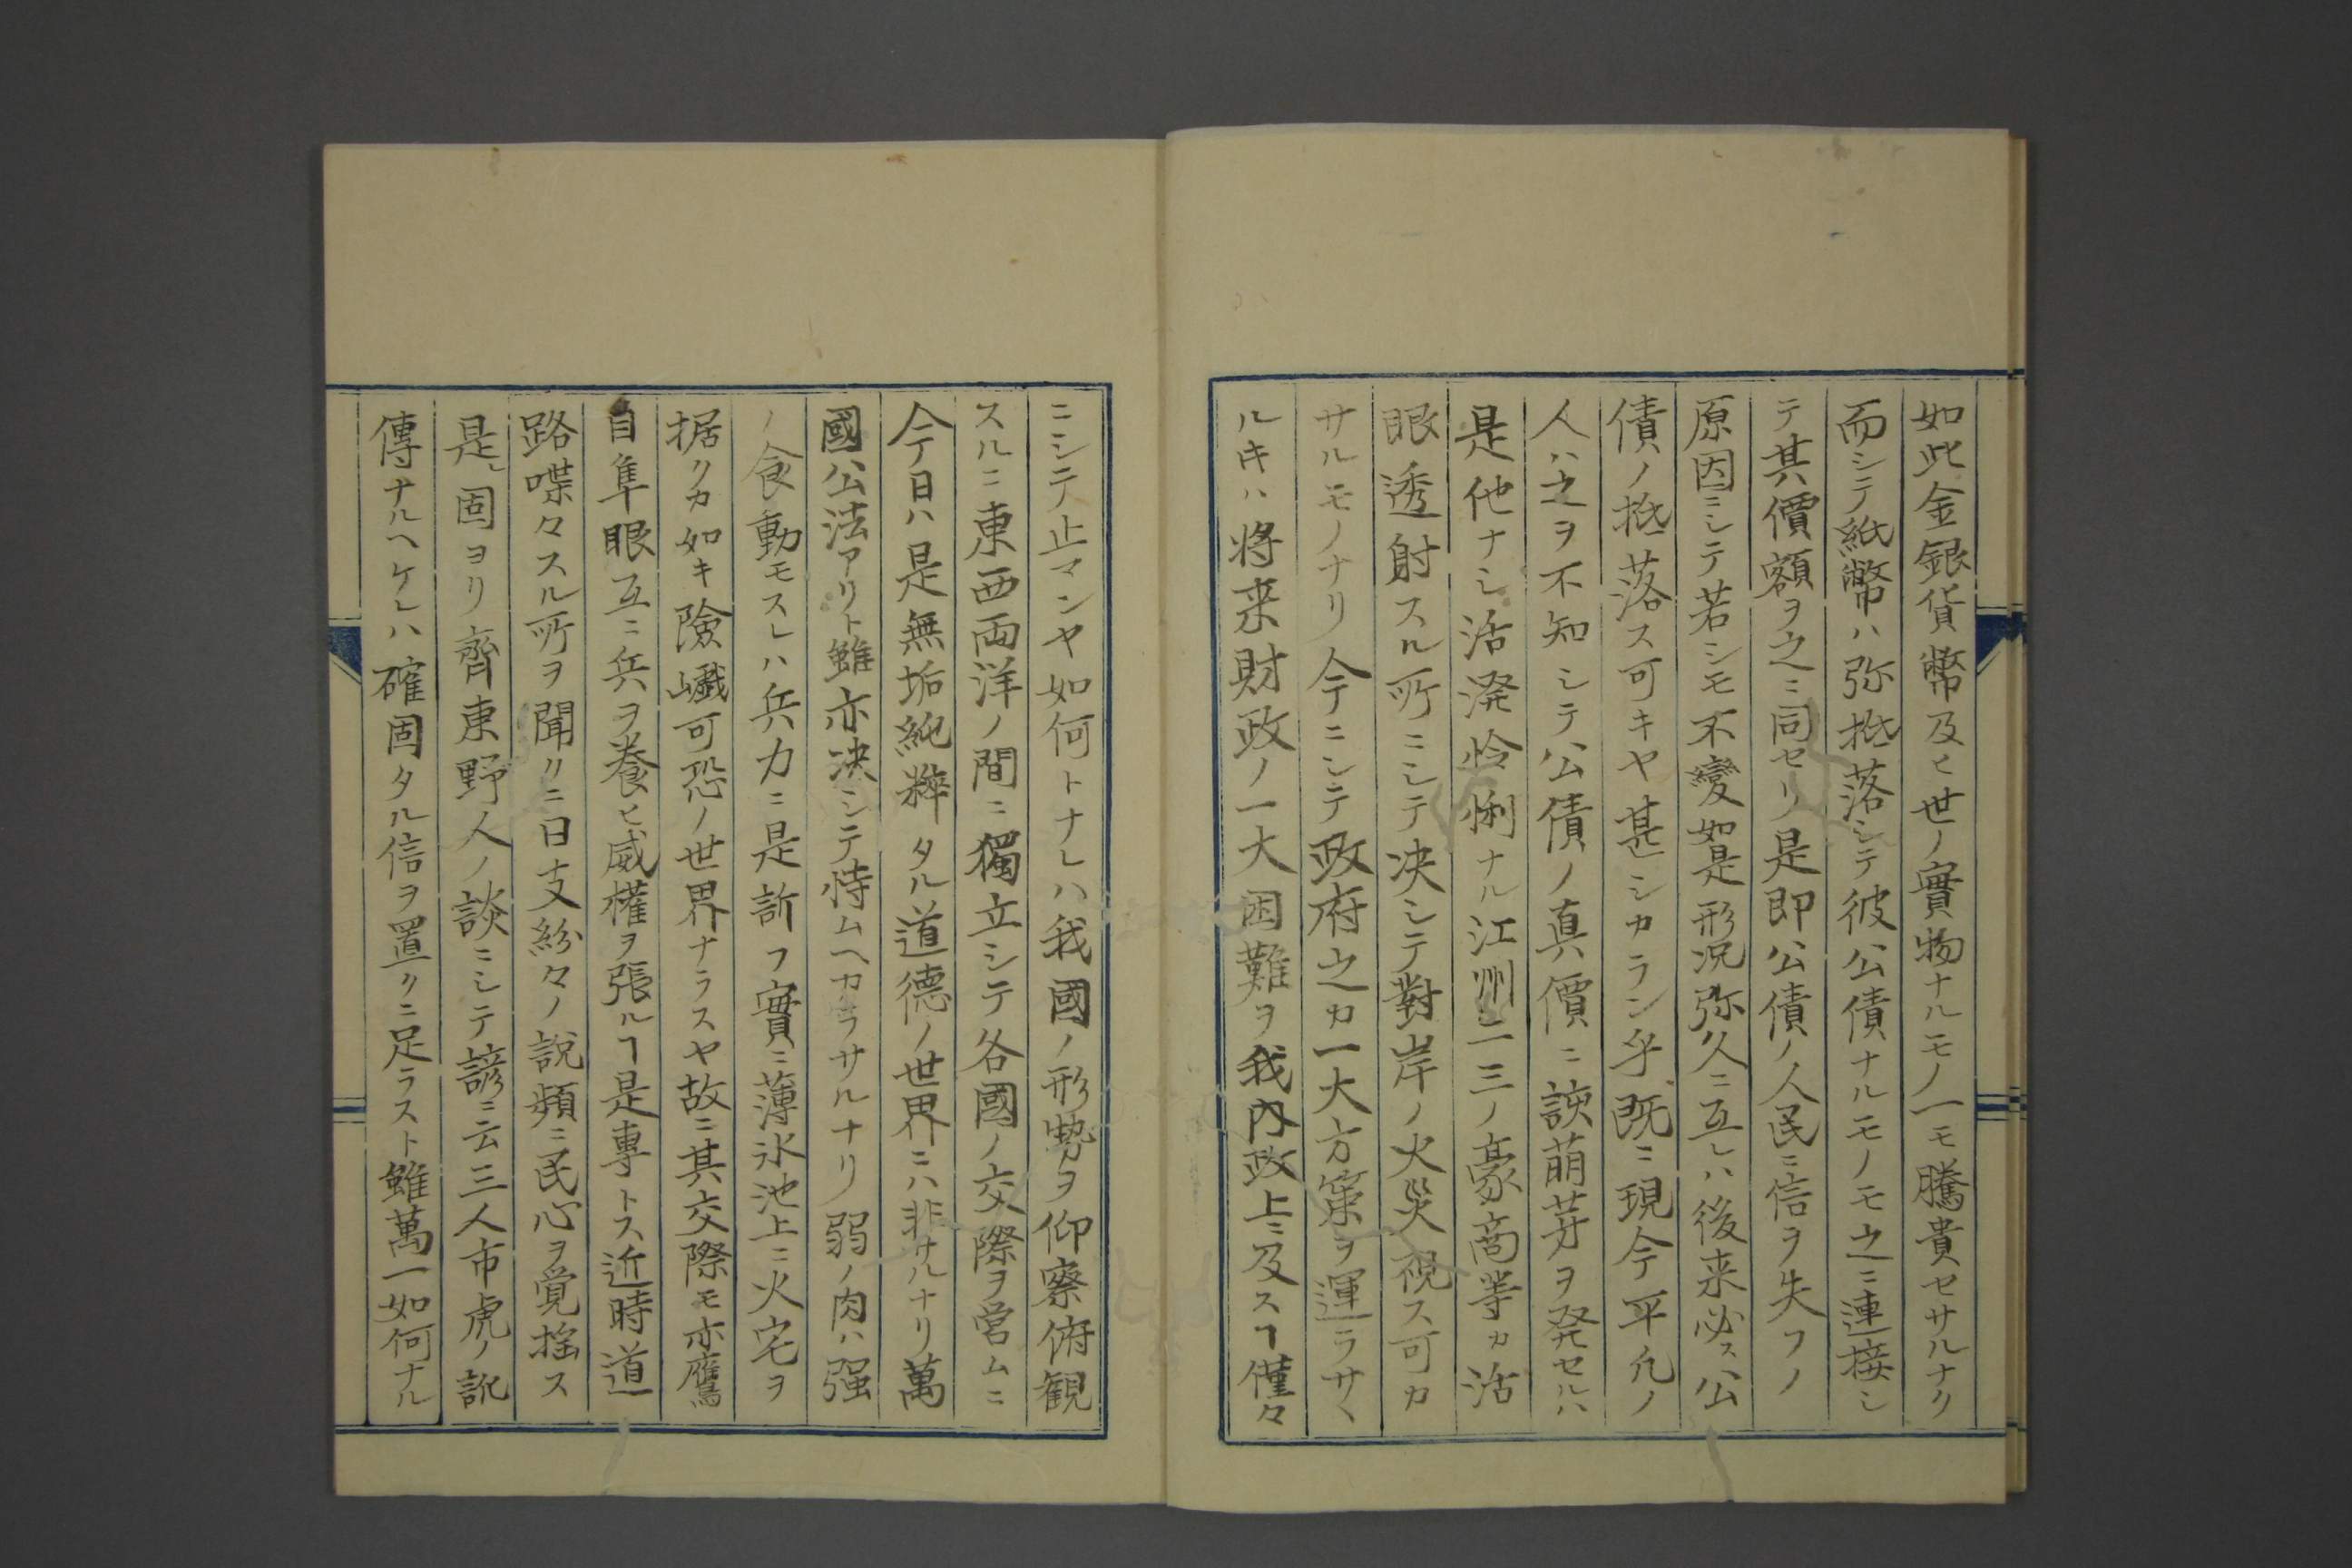 如此金銀貨幣及ヒ世ノ實物ナルモノ一モ騰貴セサルナク
而シテ紙幣ハ弥抵落シテ彼公債ナルモノモ之ニ連接シ
テ其價額ヲ之ニ同セリ是即公債ノ人民ニ信ヲ失フノ
原因ニシテ若シモ不變如是形況弥久ニ亙レハ後来必ス公
債ノ抵落ス可キヤ甚シカラン乎既ニ現今平凡ノ
人ハ之ヲ不知シテ公債ノ真價ニ誤萌芽ヲ発セルハ
是他ナシ活溌怜悧ナル江州二三ノ豪商等カ活
眼透射スル所ニシテ决シテ對岸ノ火災視ス可カ
サルモノナリ今ニシテ政府之カ一大方策ヲ運ラサヽ
ルキハ将来財政ノ一大困難ヲ我内政上ニ及スヿ僅々
ニシテ止マンヤ如何トナレハ我國ノ形勢ヲ仰察俯観
スルニ東西両洋ノ間ニ獨立シテ各國ノ交際ヲ営ムニ
今日ハ是無垢純粹タル道德ノ世界ニハ非サルナリ萬
國公法アリト雖亦决シテ恃ムヘカラサルナリ弱ノ肉ハ强
ノ食動モスレハ兵力ニ是訴フ實ニ薄氷池上ニ火宅ヲ
据クカ如キ險巇可恐ノ世界ナラスヤ故ニ其交際モ亦鷹
目隼眼互ニ兵ヲ養ヒ威權ヲ張ルヿ是專トス近時道
路喋々スル所ヲ聞クニ日支紛々ノ説頻ニ民心ヲ覚揺ス
是固ヨリ齊東野人ノ談ニシテ諺ニ云三人市虎ノ訛
傳ナルヘケレハ確固タル信ヲ置クニ足ラスト雖萬一如何ナル